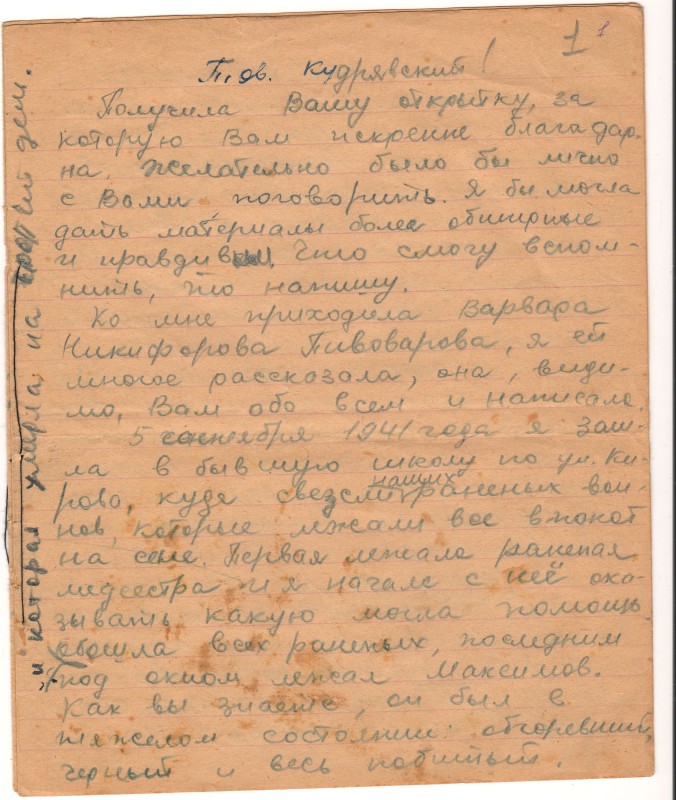 1 1
Т. ов. Кудрявский!
Получила Вашу открытку, за
которую Вам искренне благадар-
на. Желательно было бы лично
с Вами поговорить. Я бы могла
дать материалы более обширные
и правдивы. Что смогу вспом-
нить, то напишу.
Ко мне приходила Варвара
Никифорова Пивоварова, я ей
многое рассказала, она, види-
мо, Вам обо всем и написала.
5 сентября 1941 года я заш-
ла в бывшую школу по ул. Ки-
рова, куда свезли наших раненых вои-
нов, которые лежали все впокот
на сене. Первая лежала раненая
медсестра и я начала с неё ока-
зывать какую могла помощь.
обошла всех раненых, последним
под окном лежал Максимов.
Как вы знаете, он был в
тяжелом состоянии: обгоревший,
черный и весь побитый.
и которая умерла на третий день.